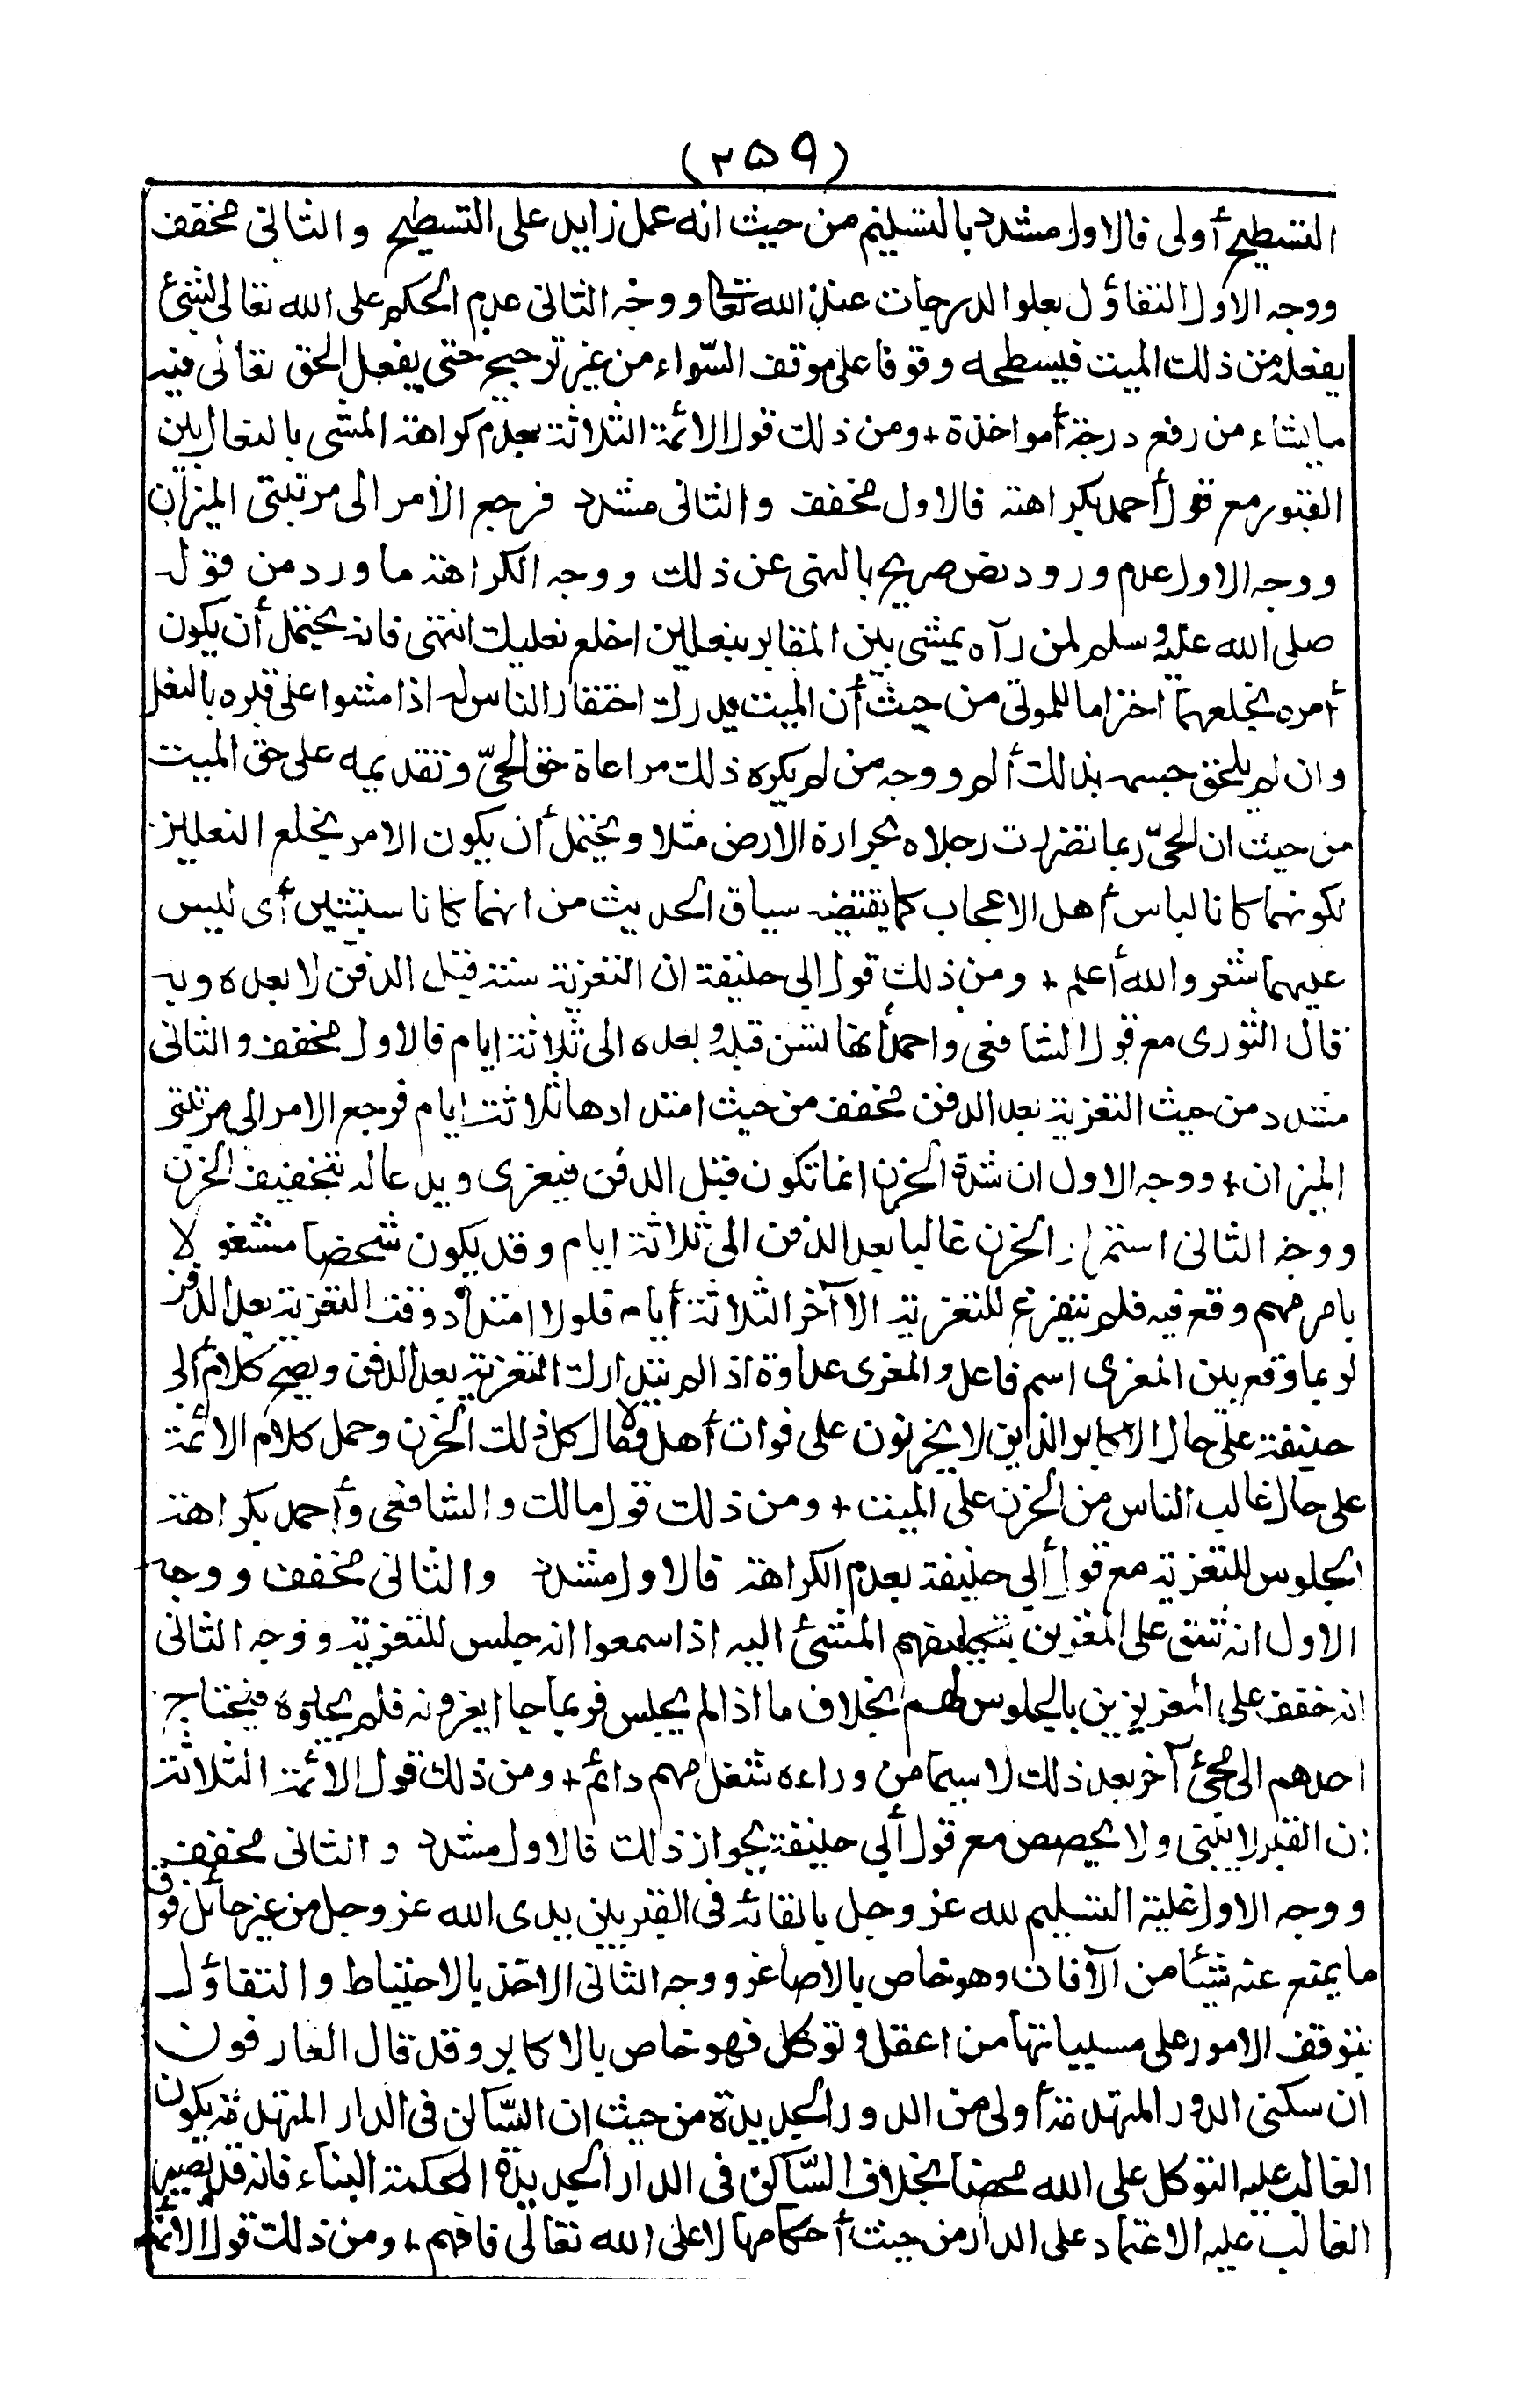 (٢٥٩)
التسطيح أولى فالاول مشدد بالتسليم من حيث انه عمل زايد على التسطيح والثانى مخفف
ووجه الاول التفاؤل بعلو الدرجات عند الله تعا ووجه الثانى عدم الحكم على الله تعالى بشئ
يفعله من ذلك الميت فيسطحه وقوفا على موقف السّواء من غير ترجيح حتى يفعل الحق تعالى فيه
ما يشاء من رفع درجة أمواخذة + ومن ذلك قول الائمة الثلاثة بعدم كراهة المشى بالنعال بين
القبور مع قول أحمد بكراهته فالاول مخفف والثانى مشدد فرجع الامر الى مرتبتى الميزان
ووجه الاول عدم ورود نص صريح بالنهى عن ذلك ووجه الكراهة ما ورد من قول
صلى الله عليه وسلم لمن رآه يمشى بين المقابر بنعلين اخلع نعليك انتهى فانه يحتمل أن يكون
أمره بخلعهما احتراما للموتى من حيث أن الميت يدرك احتقار الناس له اذا مشوا على قبره بالنعل
وان لم يلحق جسمه بذلك ألم ووجه من لم يكره ذلك مراعاة حق الحىّ وتقديمه على حق الميت
من حيث ان الحىّ ربما تضررت رجلاه بحرارة الارض مثلا ويحتمل أن يكون الامر بخلع النعلين
لكونهما كانا لباس أهل الاعجاب كما يقتضيه سياق الحديث من انهما كانا سبتيتين أى ليس
عليهما شعر والله أعلم + ومن ذلك قول ابى حنيفة ان التعزية سنة قبل الدفن لا بعده وبه
قال الثورى مع قول الشافعى واحمد أنها تسن قبله وبعده الى ثلاثة ايام فالاول مخفف والثانى
مشدد من حيث التعزية بعد الدفن مخفف من حيث امتدادها ثلاثة ايام فرجع الامر الى مرتبتى
الميزان + ووجه الاول ان شدة الحزن انما تكون قبل الدفن فيعزى ويدعا له بتخفيف الحزن
ووجه الثانى استمرار الحزن غالبا بعد الدفن الى ثلاثة ايام وقد يكون شخصا مشغولا
بامر مهم وقع فيه فلم يتفرغ للتعزية الا آخر الثلاثة أيام فلولا امتداد وقت التعزية بعد الدفن
لربما وقع بين المعزى اسم فاعل والمعزى عداوة اذا لم يتدارك التعزية بعد الدفن ويصح كلام أبى
حنيفة على حال الاكابر الذين لا يحزنون على فوات أهل ولا مال كل ذلك الحزن وحمل كلام الائمة
على حال غالب الناس من الحزن على الميت + ومن ذلك قول مالك والشافعى وأحمد بكراهة
الجلوس للتعزية مع قول أبى حنيفة بعدم الكراهة فالاول مشدد والثانى مخفف ووجه
الاول انه شق على المعزين بتكليفهم المشئ اليه اذا سمعوا انه جلس للتعزية ووجه الثانى
انه خفف على المعزيزين بالجلوس لهم بخلاف ما اذا لم يجلس فربما جاا يعزونه فلم يجدوه فيحتاج
احدهم الى مجئ آخر بعد ذلك لا سيما من وراءه شغل مهم دائم + ومن ذلك قول الائمة الثلاثة
ان القبر لا يبنى ولا يجصص مع قول أبى حنيفة بجواز ذلك فالاول مشدد والثانى مخفف
ووجه الاول غلبة التسليم لله عز وجل بالقائه فى القبر بين يدى الله عز وجل من غير حائل فوق
ما يمنع عنه شيئا من الآفات وهو خاص بالاصاغر ووجه الثانى الاخذ بالاحتياط والتفاؤل
بتوقف الامور على مسبباتها من اعقل وتوكل فهو خاص بالاكابر وقد قال العارفون
ان سكنى الدور المتهدمة أولى من الدور الجديدة من حيث ان السّاكن فى الدار المتهدمة يكون
الغالب عليه التوكل على الله محضا بخلاف السّاكن فى الدار الجديدة المحكمة البناء فانه قد يصير
الغالب عليه الاعتماد على الدار من حيث أحكامها لا على الله تعالى فافهم + ومن ذلك قول الائمة